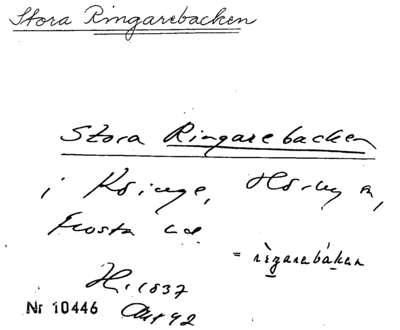 Stora Ringarebacken
Stora Ringarebacken
i Köinge, Hörby sn,
Frosta hd
= rìgarebàkan
H. 1837
Nr 10446 Akt 42